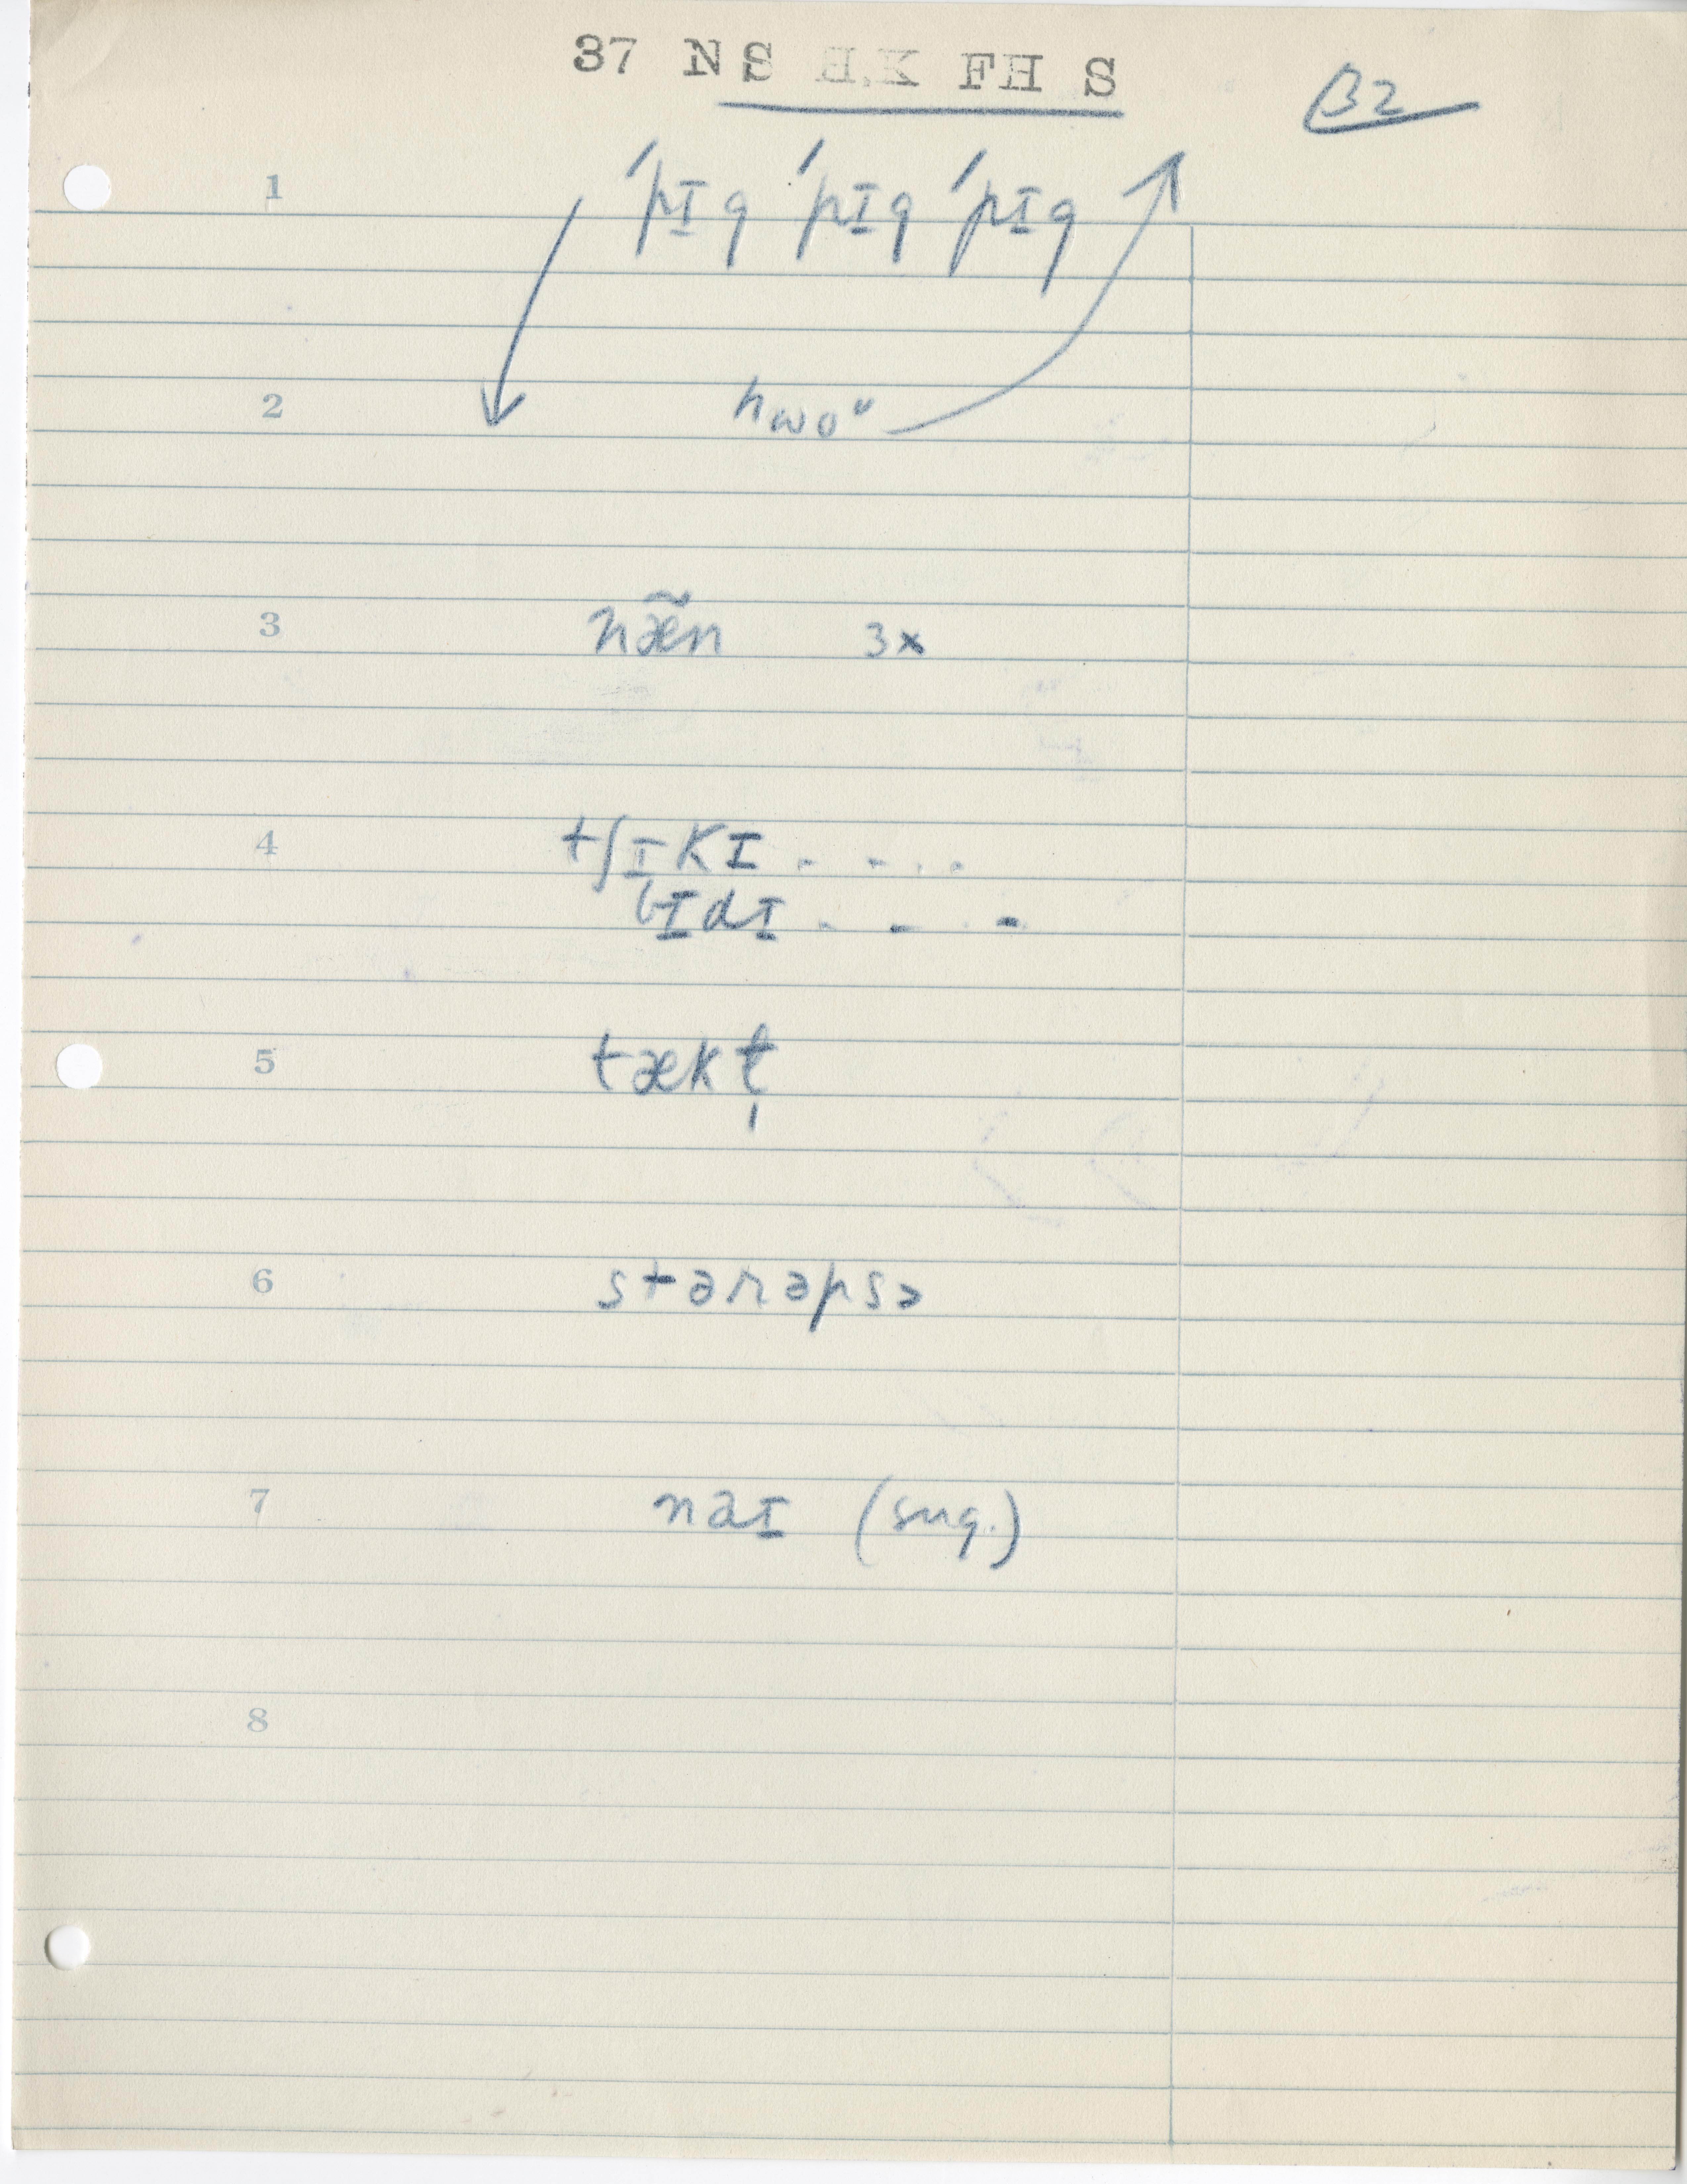 37 NS H.K FH S
B2
1 ˈpɪg ˈpɪg ˈpɪg
2 hwoᵘ
3 næ̃n 3x
4 tʃɪkɪ . - . .
bɪdɪ . - . -
5 tækt̩
6 stərəpsə
7 naɪ (sug.)
8